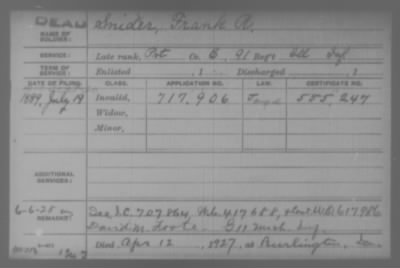 DEAD
NAME OF SOLDIER: Snider, Frank A.
SERVICE: Late rank, Pvt Co. E, 91 Reg't Ill Inf
TERM OF SERVICE: Enlisted , 1 Discharged , 1
DATE OF FILING. CLASS. APPLICATION NO. LAW. CERTIFICATE NO.
1889, July 18 Invalid, 717,906 555,247
Widow,
Minor,
ADDITIONAL SERVICES:
6-6-28
REMARKS: See I.C. 707,864, Wid. 417688, 617986
David M. Foote. G 11 Mich. Inf.
Died Apr 12, 1927, at Burlington, Ia.